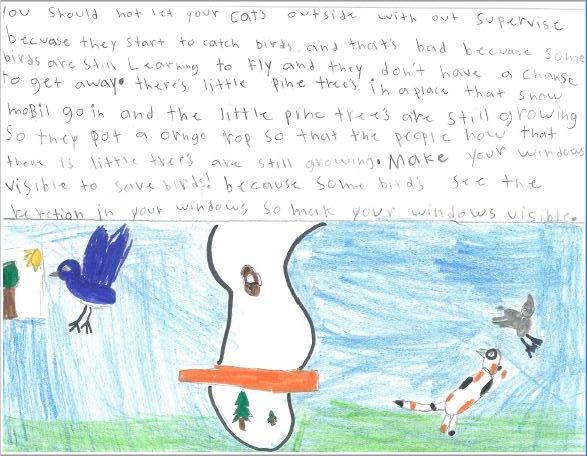 You should not let your cats outside with out supervise
becuase they start to catch birds. and that's bad becuase some
birds are still Learning to fly and they don't have a chanse
to get away. there's little pine tree's in a place that snow
mobil go in and the little pine tree's are still growing
So they pot a ornge rop so that the people how that
there is little tree's are still growing. Make your windows
visible to save birds! because some bird's see the
in your windows so mak your windows visible.